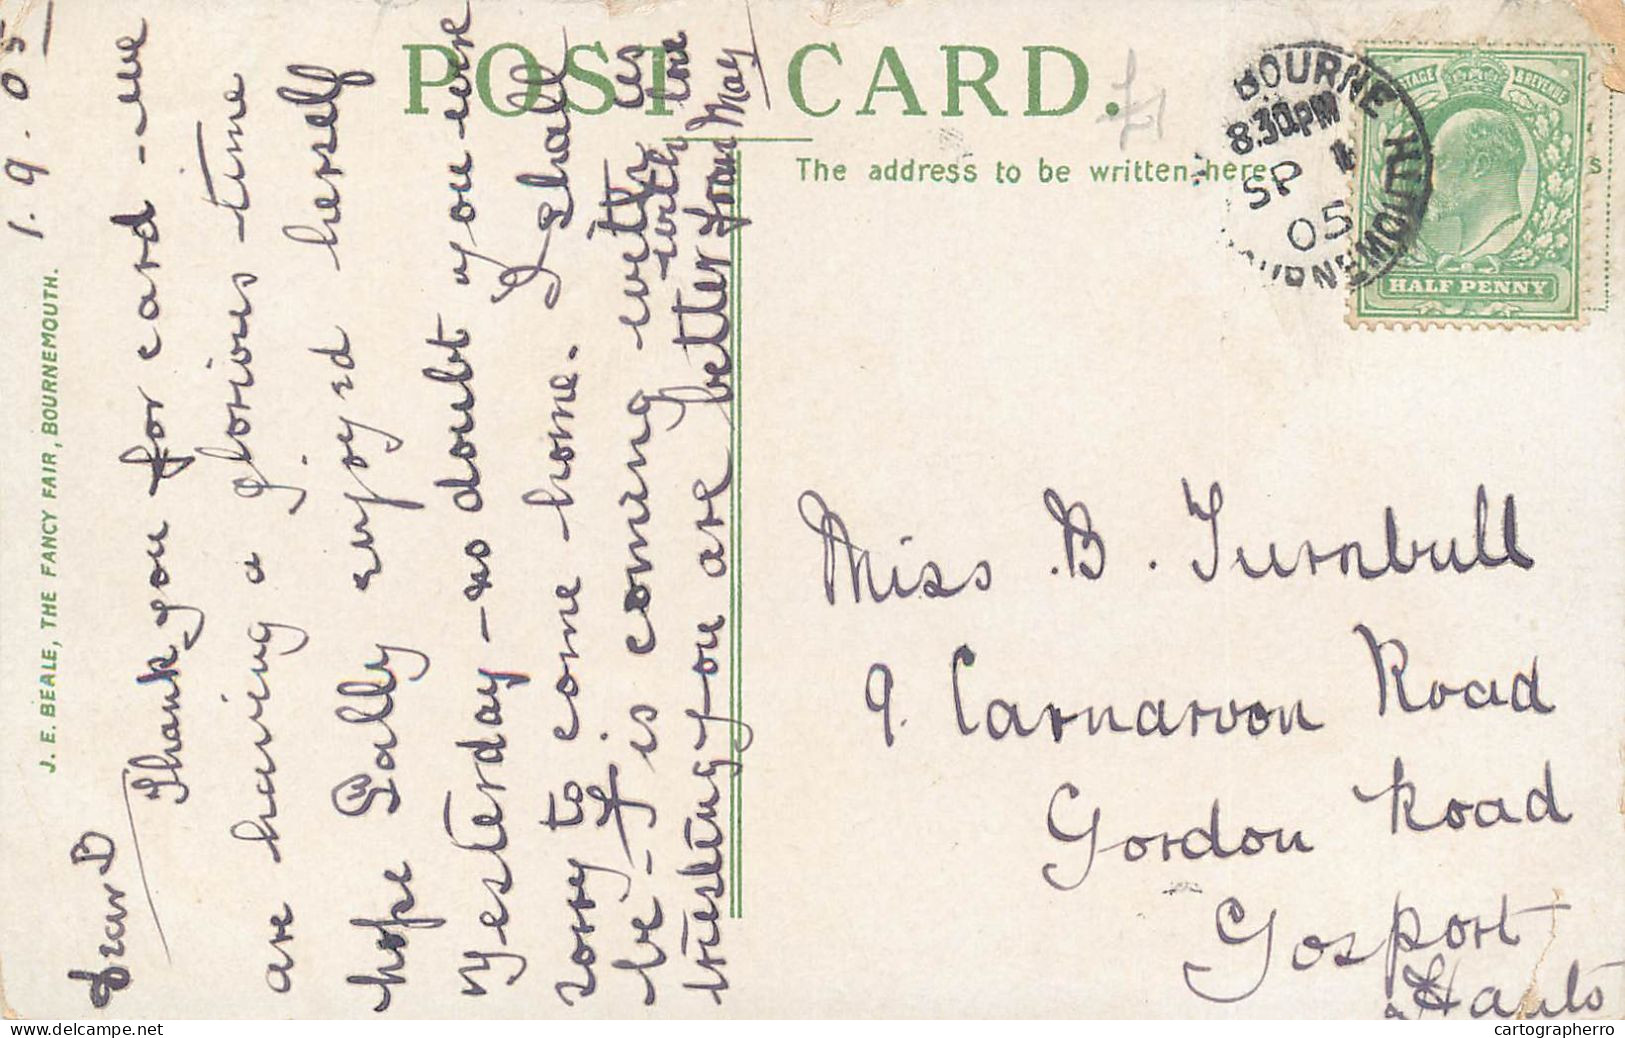 POST CARD.
The address to be written here
BOURNEMOUTH
8.30PM
SP 1
05
BOURNEMOUTH
POSTAGE & REVENUE
HALF PENNY
J. E. BEALE, THE FANCY FAIR, BOURNEMOUTH.
1.9.05
Dear B
Thank you for card - we
are having a glorious time
hope Sally enjoyed herself
yesterday - no doubt you were
sorry to come home. I shall
be - J is coming with us
trusting you are better with love
from May
Miss B. Turnbull
9. Carnarvon Road
Gordon Road
Gosport
Hants
cartographerro